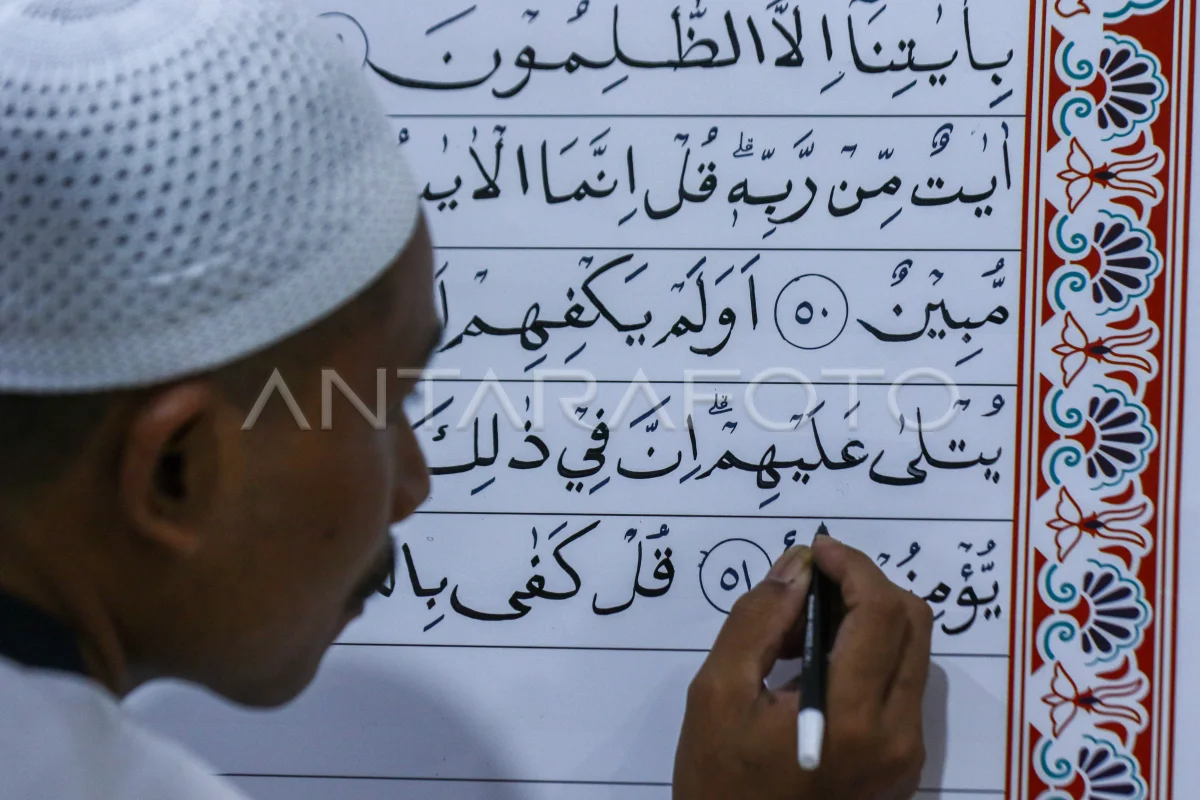 بِاٰيٰتِنَآ اِلَّا الظّٰلِمُوْنَ
اٰيٰتٌ مِّنْ رَّبِّهٖ ۗ قُلْ اِنَّمَا الْاٰيٰ
مُّبِيْنٌ ٥٠ اَوَلَمْ يَكْفِهِمْ
يُتْلٰى عَلَيْهِمْ ۗ اِنَّ فِيْ ذٰلِكَ
يُّؤْمِنُ ٥١ قُلْ كَفٰى بِال
ANTARAFOTO